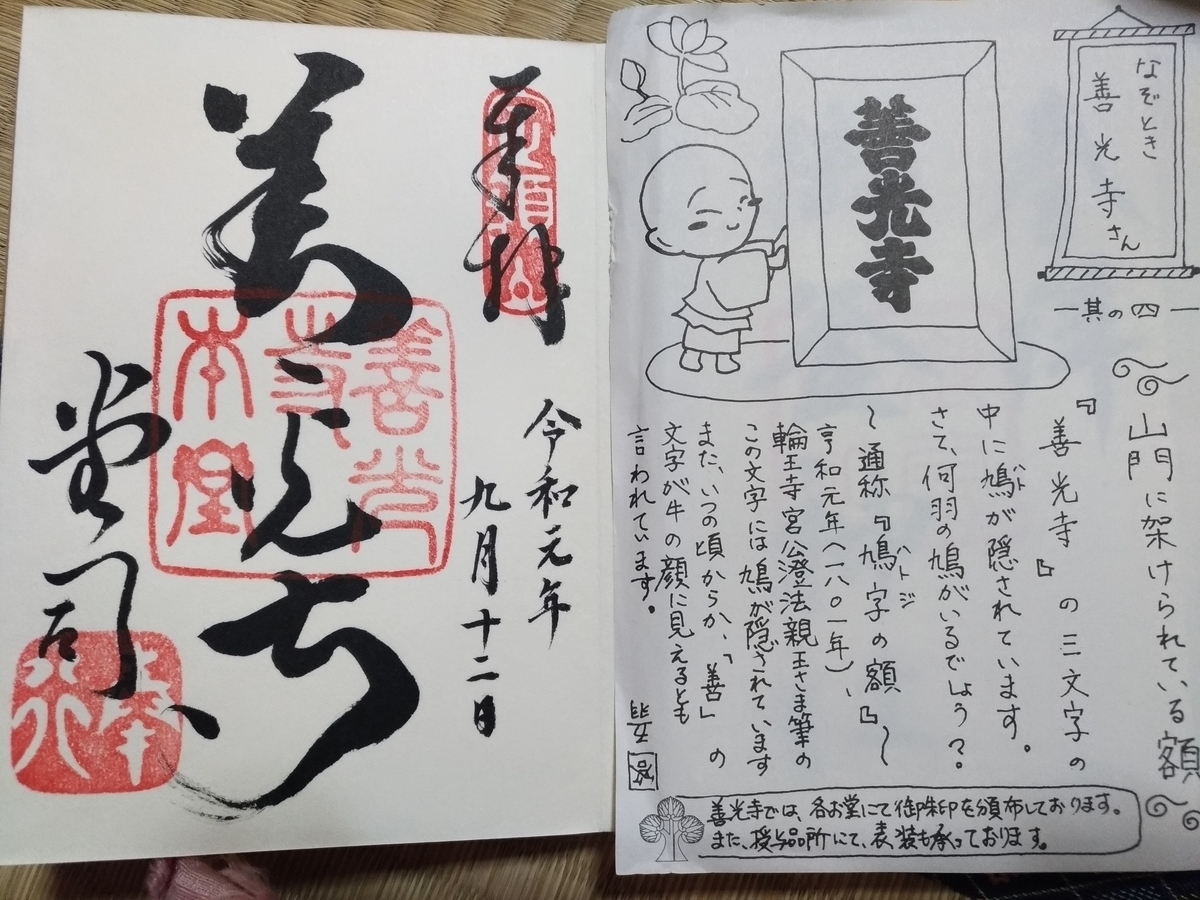 奉拝
定額山
令和元年
九月十二日
善光寺
善光
寺
本堂
堂司
なぞとき
善光寺さん
其の四
善光寺
山門に架けられている額
『善光寺』の三文字の
中に鳩が隠されています。
ハト
さて、何羽の鳩がいるでしょう？
〜通称『鳩字の額』〜
ハトジ
亨和元年(一八〇一年)、
輪王寺宮公澄法親王さま筆の
この文字には鳩が隠されています
また、いつの頃からか、「善」の
文字が牛の顔に見えるとも
言われています。
善光寺では、各お堂にて御朱印を頒布しております。
また、授与品所にて、表装も承っております。